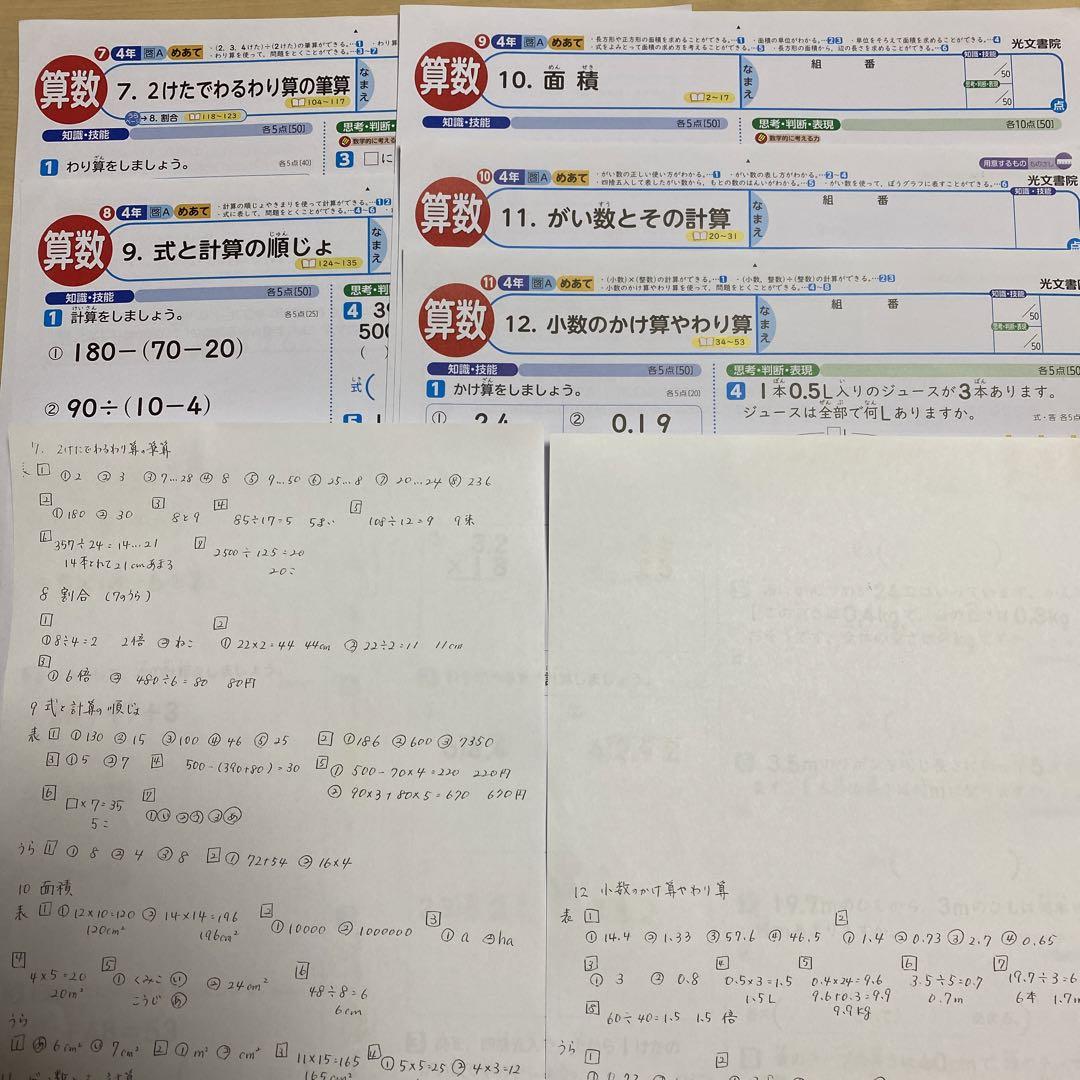 ⑦ 4年 啓A めあて ・(2, 3, 4けた)÷(2けた)の筆算ができる。…1 ・わり算
・わり算を使って、問題をとくことができる。…3〜7
算数 7. 2けたでわるわり算の筆算 104〜117 なまえ
→8. 割合 118〜123
知識・技能 各5点[50] 思考・判断
数学的に考える
1 わり算をしましょう。 各5点(40) 3 □に
⑧ 4年 啓A めあて ・計算の順じょやきまりを使って計算ができる。…1 2
・式に表して、問題をとくことができる。…4〜6
算数 9. 式と計算の順じょ 124〜135 なまえ
知識・技能 各5点[50] 思考・判断
1 計算をしましょう。 各5点(25) 4 39
500
① 180−(70−20)
式(
② 90÷(10−4) 5
⑨ 4年 啓A めあて ・長方形や正方形の面積を求めることができる。…1 ・面積の単位がわかる。…2 3 ・単位をそろえて面積を求めることができる。…4
・式をよみとって面積の求め方を考えることができる。…5 ・長方形の面積から、辺の長さを求めることができる。…6
光文書院
算数 10. 面積 2〜17 なまえ 組 番 知識・技能 /50 思考・判断・表現 /50 点
知識・技能 各5点[50] 思考・判断・表現 各10点[50]
数学的に考える力
用意するもの ものさし
⑩ 4年 啓A めあて ・がい数の正しい使い方がわかる。…1 ・がい数の表し方がわかる。…2〜4
・四捨五入して表したがい数から、もとの数のはんいがわかる。…5 ・がい数を使って、ぼうグラフに表すことができる。…6
光文書院
算数 11. がい数とその計算 20〜31 なまえ 組 番 知識・技能 点
⑪ 4年 啓A めあて ・(小数)×(整数)の計算ができる。…1 ・(小数、整数)÷(整数)の計算ができる。…2 3
・小数のかけ算やわり算を使って、問題をとくことができる。…4〜8
光文書院
算数 12. 小数のかけ算やわり算 34〜53 なまえ 組 番 知識・技能 /50 思考・判断・表現 /50
知識・技能 各5点[50] 思考・判断・表現 各5点[50]
1 かけ算をしましょう。 各5点(20) 4 1本0.5L入りのジュースが3本あります。
ジュースは全部で何Lありますか。 式・答 各5点
① 2.4 ② 0.19
7. 2けたでわるわり算の筆算
1 ①2 ②3 ③7…28 ④8 ⑤9…50 ⑥25…8 ⑦20…24 ⑧236
2 ①180 ②30 3 8と9 4 85÷17=5 5まい 5 108÷12=9 9本
6 357÷24=14…21 7 2500÷125=20
14本とれて21cmあまる 20こ
8 割合 (7のうら)
1 ①8÷4=2 2倍 ②ねこ 2 ①22×2=44 44cm ②22÷2=11 11cm
3 ①6倍 ②480÷6=80 80円
9 式と計算の順じょ
表 1 ①130 ②15 ③100 ④46 ⑤25 2 ①186 ②600 ③7350
3 ①5 ②7 4 500−(390+80)=30 5 ①500−70×4=220 220円
②90×3+80×5=670 670円
6 □×7=35 7 ①い ②う ③あ
5こ
うら 1 ①8 ②4 ③8 2 ①72+54 ②16×4
10 面積
表 1 ①12×10=120 ②14×14=196 2 ①10000 ②1000000 3 ①a ②ha
120cm² 196cm²
4 4×5=20 5 ①くみこ い ②24cm² 6 48÷8=6
20m² こうじ あ 6cm
うら
1 あ6cm² い7cm² 2 ①m² ②cm² 3 11×15=165 4 ①5×5=25 ②4×3=12
165cm²
12 小数のかけ算やわり算
表 1 ①14.4 ②1.33 ③57.6 ④46.5 2 ①1.4 ②0.73 ③2.7 ④0.65
3 ①3 ②0.8 4 0.5×3=1.5 5 0.4×24=9.6 6 3.5÷5=0.7 7 19.7÷3=6
1.5L 9.6+0.3=9.9 0.7m 6本 1.7m
9.9kg
8 60÷40=1.5 1.5倍
うら 1 2